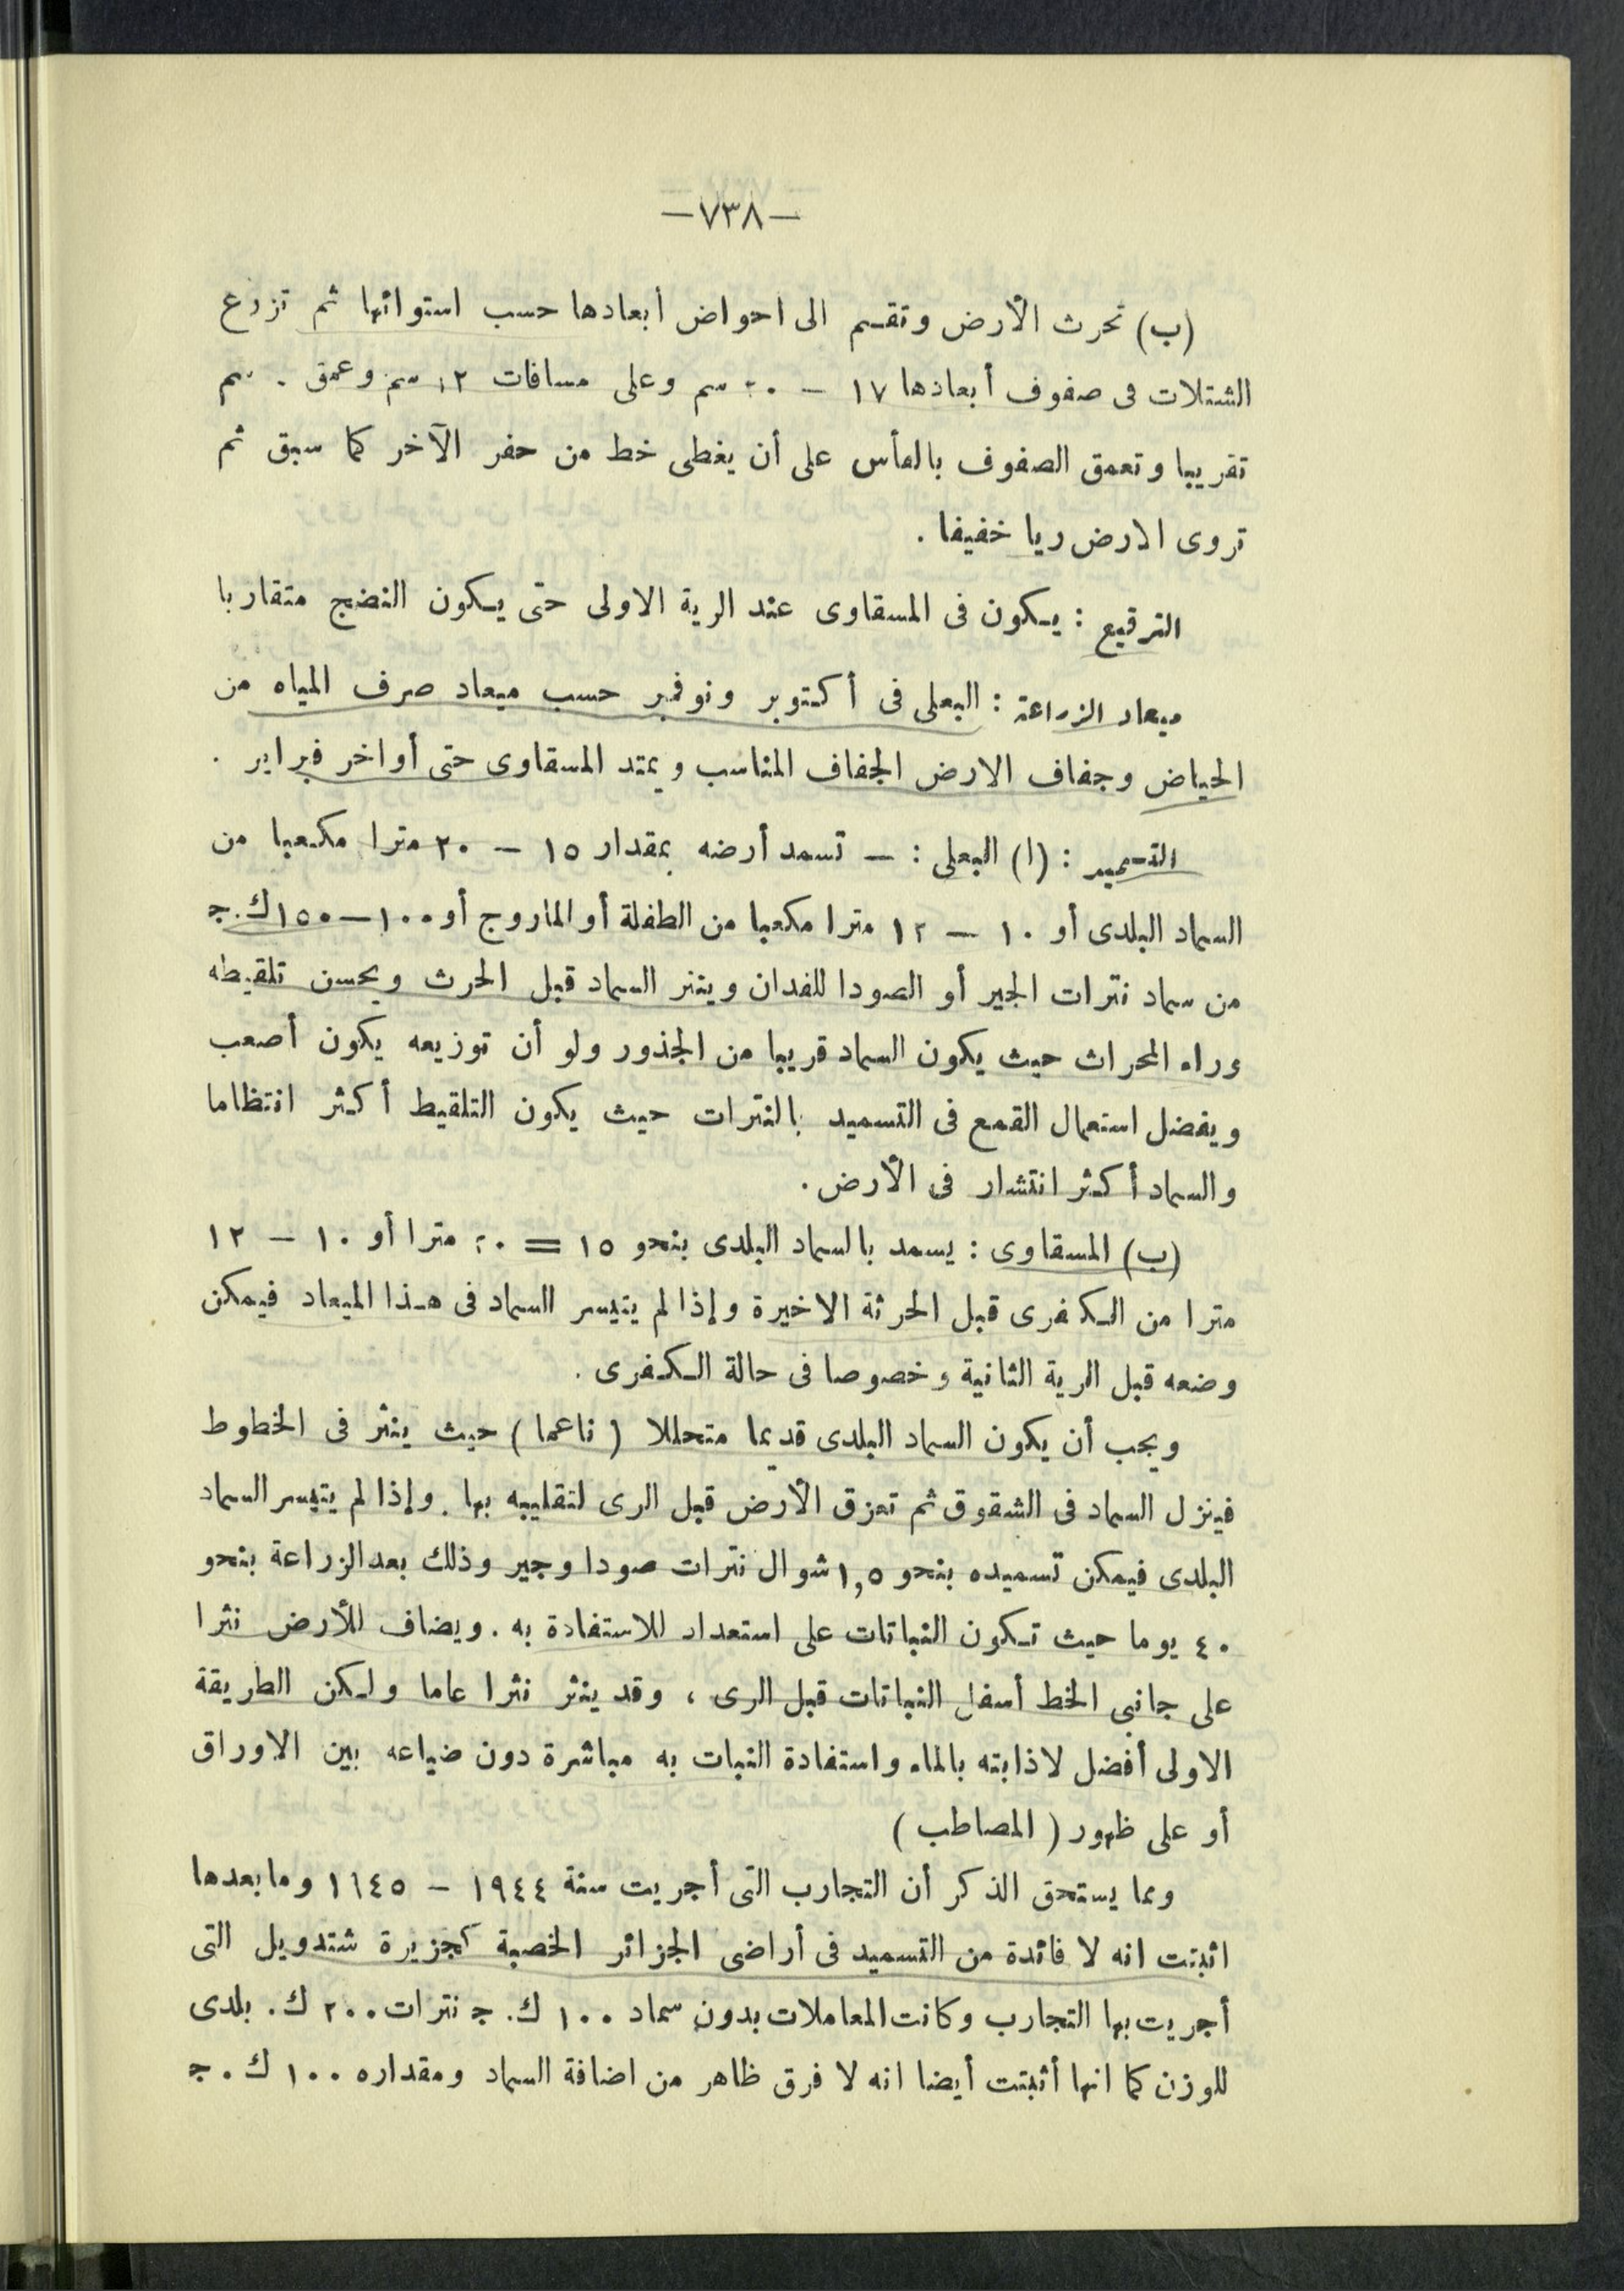 —٧٣٨—
(ب) تحرث الأرض وتقسم الى احواض أبعادها حسب استوائها ثم تزرع
الشتلات فى صفوف أبعادها ١٧ — ٢٠ سم وعلى مسافات ١٢ سم وعمق . سم
تقريبا وتعمق الصفوف بالفأس على أن يغطى خط من حفر الآخر كما سبق ثم
تروى الارض ريا خفيفا .
الترقيع : يكون فى المسقاوى عند الرية الاولى حتى يكون النضج متقاربا
ميعاد الزراعة : البعلى فى أكتوبر ونوفمبر حسب ميعاد صرف المياه من
الحياض وجفاف الارض الجفاف المناسب ويمتد المسقاوى حتى أواخر فبراير .
التسميد : (ا) البعلى : — تسمد أرضه بمقدار ١٥ — ٢٠ مترا مكعبا من
السماد البلدى أو ١٠ — ١٢ مترا مكعبا من الطفلة أو الماروج أو ١٠٠—١٥٠ ك. ج
من سماد نترات الجير أو الصودا للفدان وينثر السماد قبل الحرث ويحسن تلقيطه
وراء المحراث حيث يكون السماد قريبا من الجذور ولو أن توزيعه يكون أصعب
ويفضل استعمال القمع فى التسميد بالنترات حيث يكون التلقيط أكثر انتظاما
والسماد أكثر انتشار فى الأرض .
(ب) المسقاوى : يسمد بالسماد البلدى بنحو ١٥ = ٢٠ مترا أو ١٠ — ١٢
مترا من الكفرى قبل الحرثة الاخيرة وإذا لم يتيسر السماد فى هذا الميعاد فيمكن
وضعه قبل الرية الثانية وخصوصا فى حالة الكفرى .
ويجب أن يكون السماد البلدى قديما متحللا ( ناعما ) حيث ينثر فى الخطوط
فينزل السماد فى الشقوق ثم تعزق الأرض قبل الرى لتقليبه بها . وإذا لم يتيسر السماد
البلدى فيمكن تسميده بنحو ١,٥ شوال نترات صودا وجير وذلك بعد الزراعة بنحو
٤٠ يوما حيث تكون النباتات على استعداد للاستفادة به . ويضاف للأرض نثرا
على جانبى الخط أسفل النباتات قبل الرى ، وقد ينثر نثرا عاما ولكن الطريقة
الاولى أفضل لاذابته بالماء واستفادة النبات به مباشرة دون ضياعه بين الاوراق
أو على ظهور ( المصاطب )
ومما يستحق الذكر أن التجارب التى أجريت سنة ١٩٤٤ — ١٩٤٥ وما بعدها
اثبتت انه لا فائدة من التسميد فى أراضى الجزائر الخصبة كجزيرة شندويل التى
أجريت بها التجارب وكانت المعاملات بدون سماد ١٠٠ ك. ج نترات ٢٠٠ ك. بلدى
للوزن كما انها أثبتت أيضا انه لا فرق ظاهر من اضافة السماد ومقداره ١٠٠ ك . ج